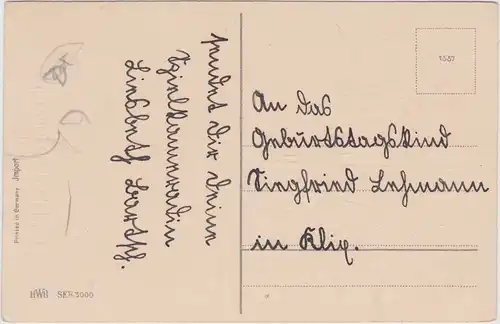 sendet Dir Deine
Spielkameradin
Liesbeth
An das
Geburtstagskind
Siegfried Lehmann
in Klix.
1537
Printed in Germany Import
HWB SER.5000